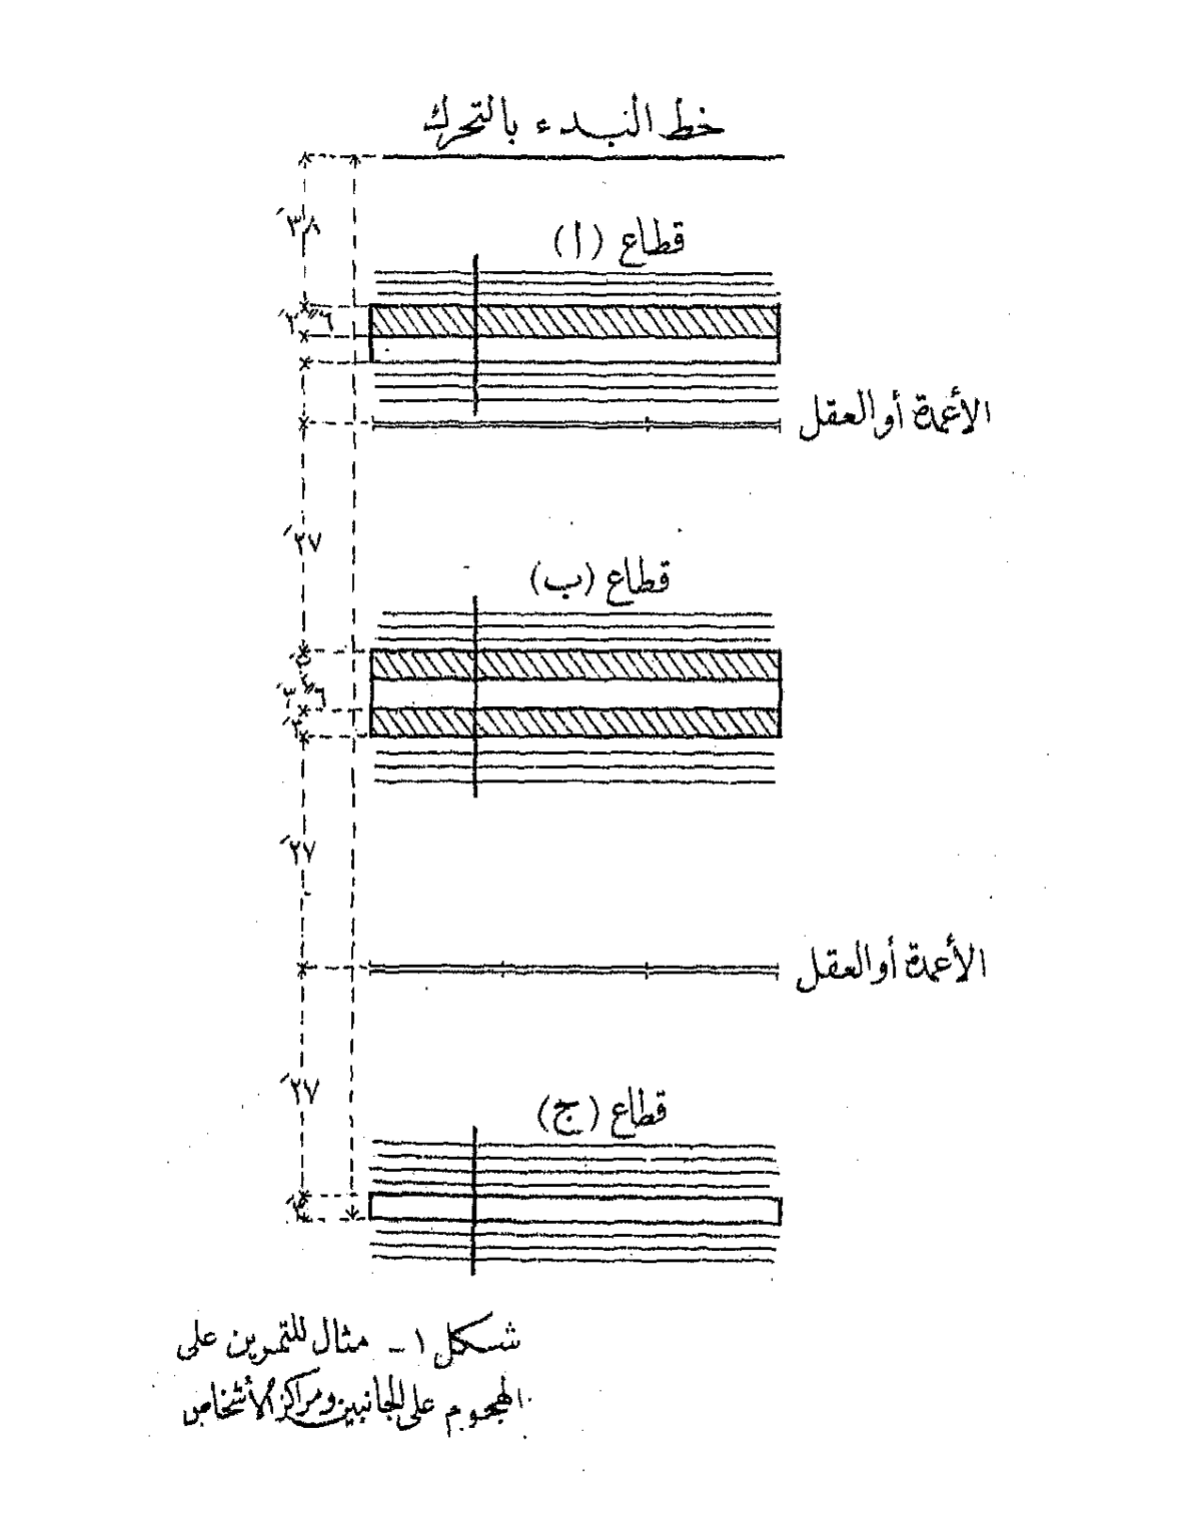 خط البدء بالتحرك
٣٨′
قطاع (أ)
٣′ ٦″
الأعمدة أو العقل
٢٧′
قطاع (ب)
٣′ ٦″
٢٧′
الأعمدة أو العقل
٢٧′
قطاع (ج)
شكل ١ - مثال للتمرين على
الهجوم على الجانبين ومراكز الأشخاص